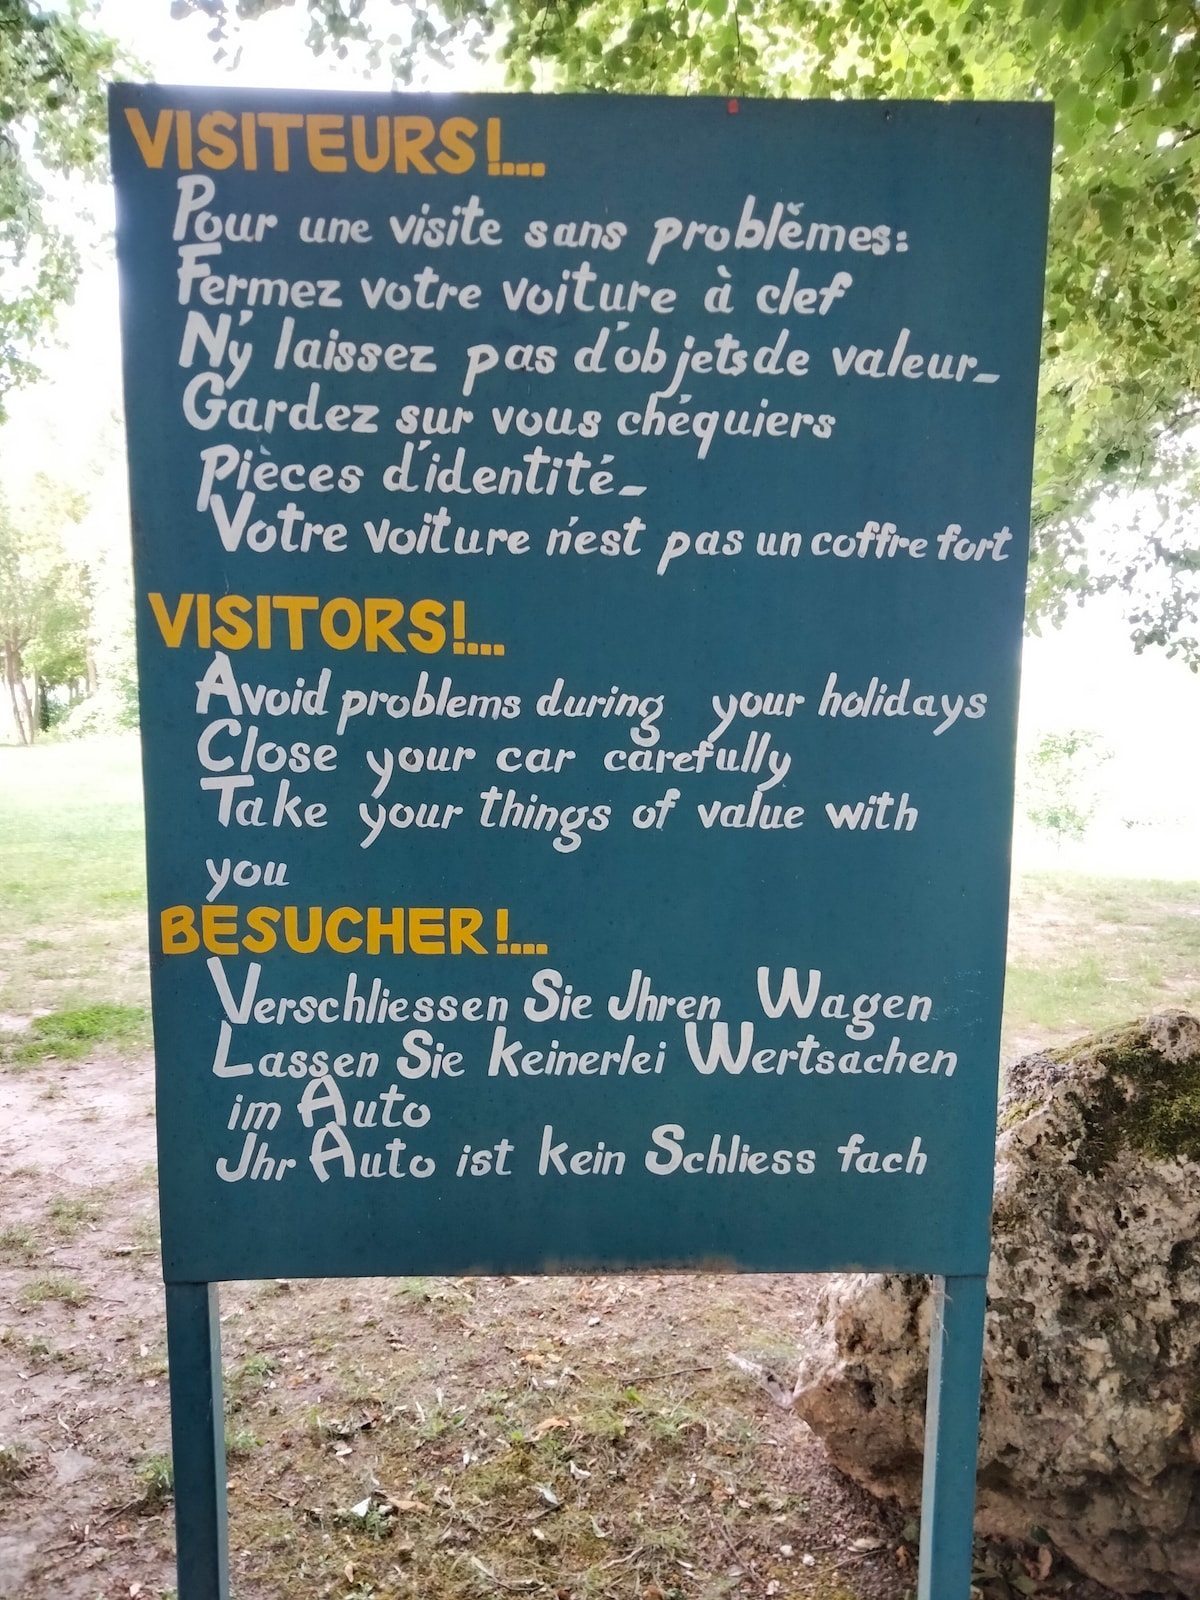 VISITEURS!...
Pour une visite sans problĕmes:
Fermez votre voiture à clef
N'y laissez pas d'objets de valeur_
Gardez sur vous chéquiers
Pièces d'identité_
Votre voiture n'est pas un coffre fort
VISITORS!...
Avoid problems during your holidays
Close your car carefully
Take your things of value with
you
BESUCHER!...
Verschliessen Sie Jhren Wagen
Lassen Sie keinerlei Wertsachen
im Auto
Jhr Auto ist kein Schliess fach